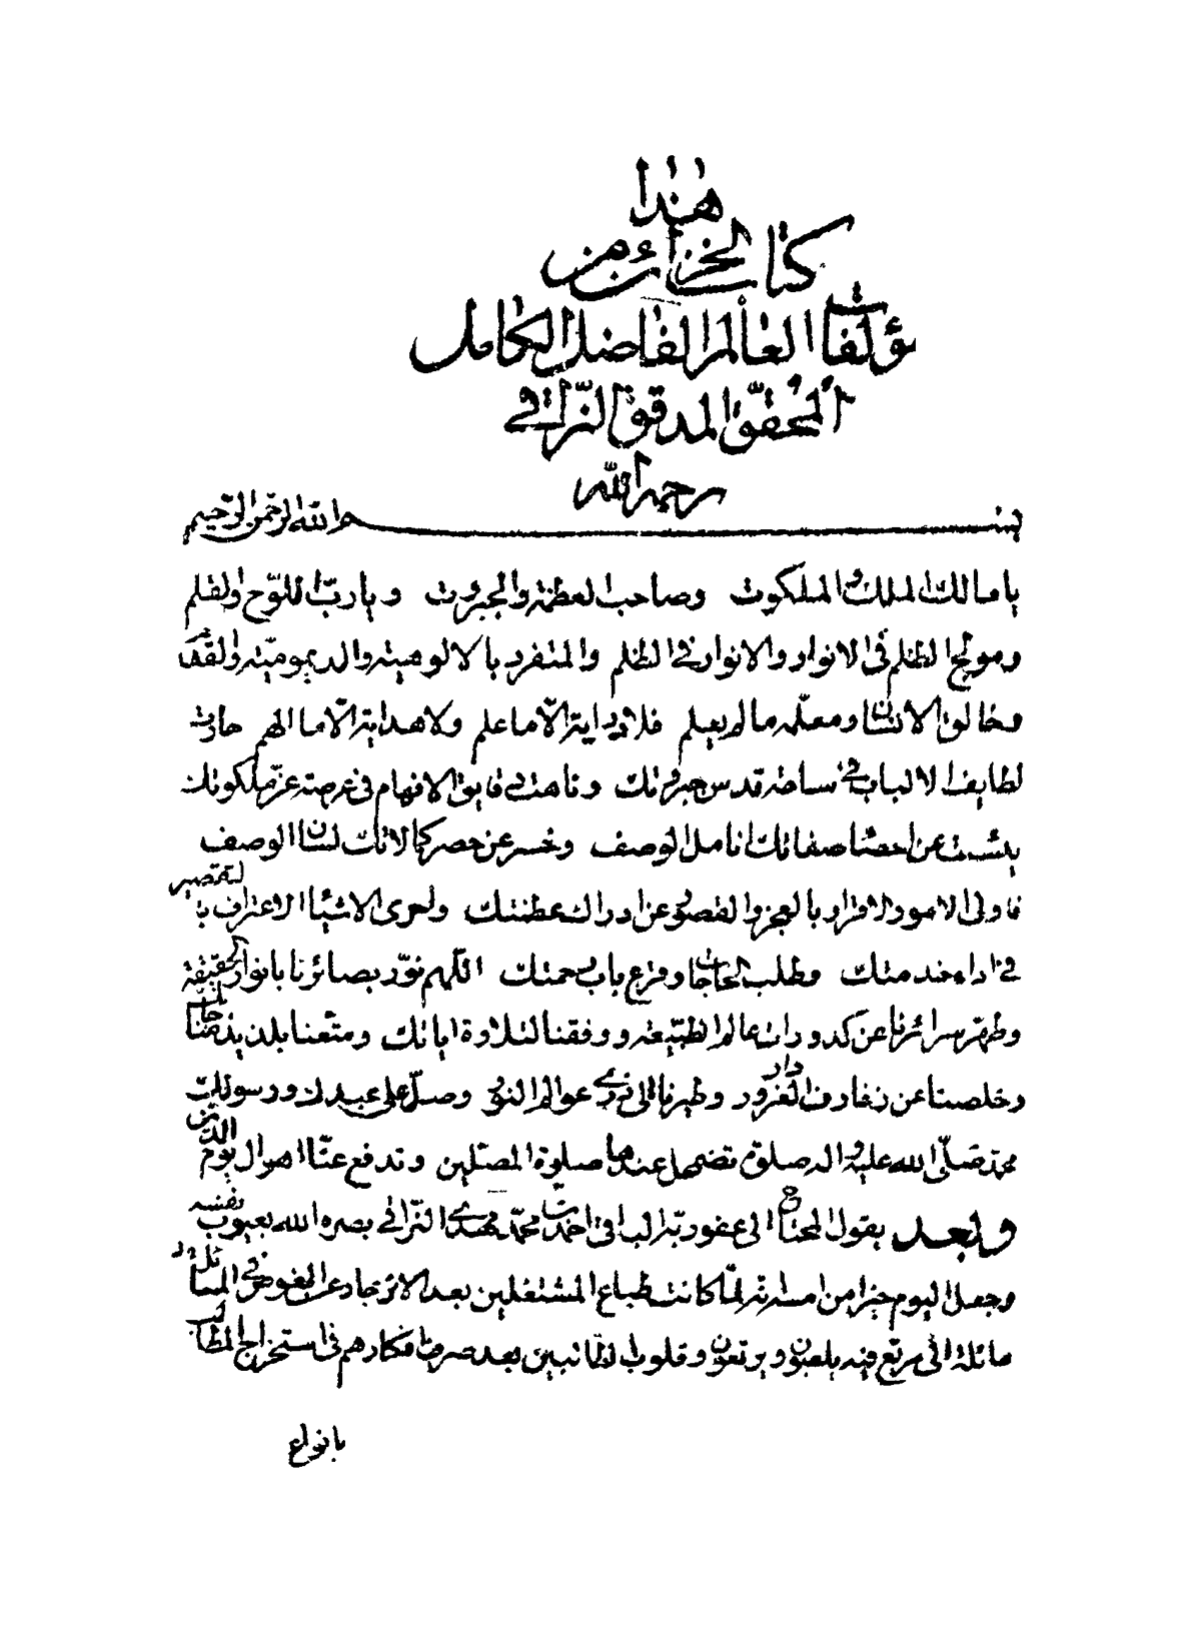 هذا
كتاب الخزائن من
مؤلفات العالم الفاضل الكامل
المحقق المدقق النراقي
رحمه الله
بسم الله الرحمن الرحيم
يا مالك الملك والملكوت وصاحب العظمة والجبروت ويا رب اللوح والقلم
ومولج الظلم في الانوار والانوار في الظلم والمتفرد بالالوهية والديمومية والقدم
وخالق الانسان ومعلمه ما لم يعلم فلا دراية الا ما علم ولا هداية الا ما الهم حارت
لطايف الالباب في ساحة قدس جبروتك وتاهت دقايق الافهام في عرصة عز ملكوتك
يئست عن احصاء صفاتك انامل الوصف وخسر عن حصر كمالاتك لسان الوصف
فاولى الامور الاقرار بالعجز والقصور عن ادراك عظمتك واحرى الاشياء الاعتراف بالتقصير
في اداء خدمتك وطلب الحاجات وقرع باب رحمتك اللهم نور بصائرنا بانوار الحقيقة
وطهر سرائرنا عن كدورات عالم الطبيعة ووفقنا لتلاوة اياتك ومتعنا بلذيذ مناجاتك
وخلصنا عن زخارف دار الغرور وطيرنا الى ذرى عوالم النور وصل على عبدك ورسولك
محمد صلى الله عليه واله صلوة تضمحل عندها صلوة المصلين وتدفع عنا اهوال يوم الدين
وبعد يقول المحتاج الى عفو ربه الباقي احمد بن محمد مهدي النراقي بصره الله بعيوب نفسه
وجعل اليوم خيرا من امسه انه لما كانت طباع المشتغلين بعد الانزجار عن الغوص في المسائل
مائلة الى مرتع فيه يلعبون ويرتعون وقلوب الطالبين بعد صرف افكارهم في استخراج المطالب
بانواع